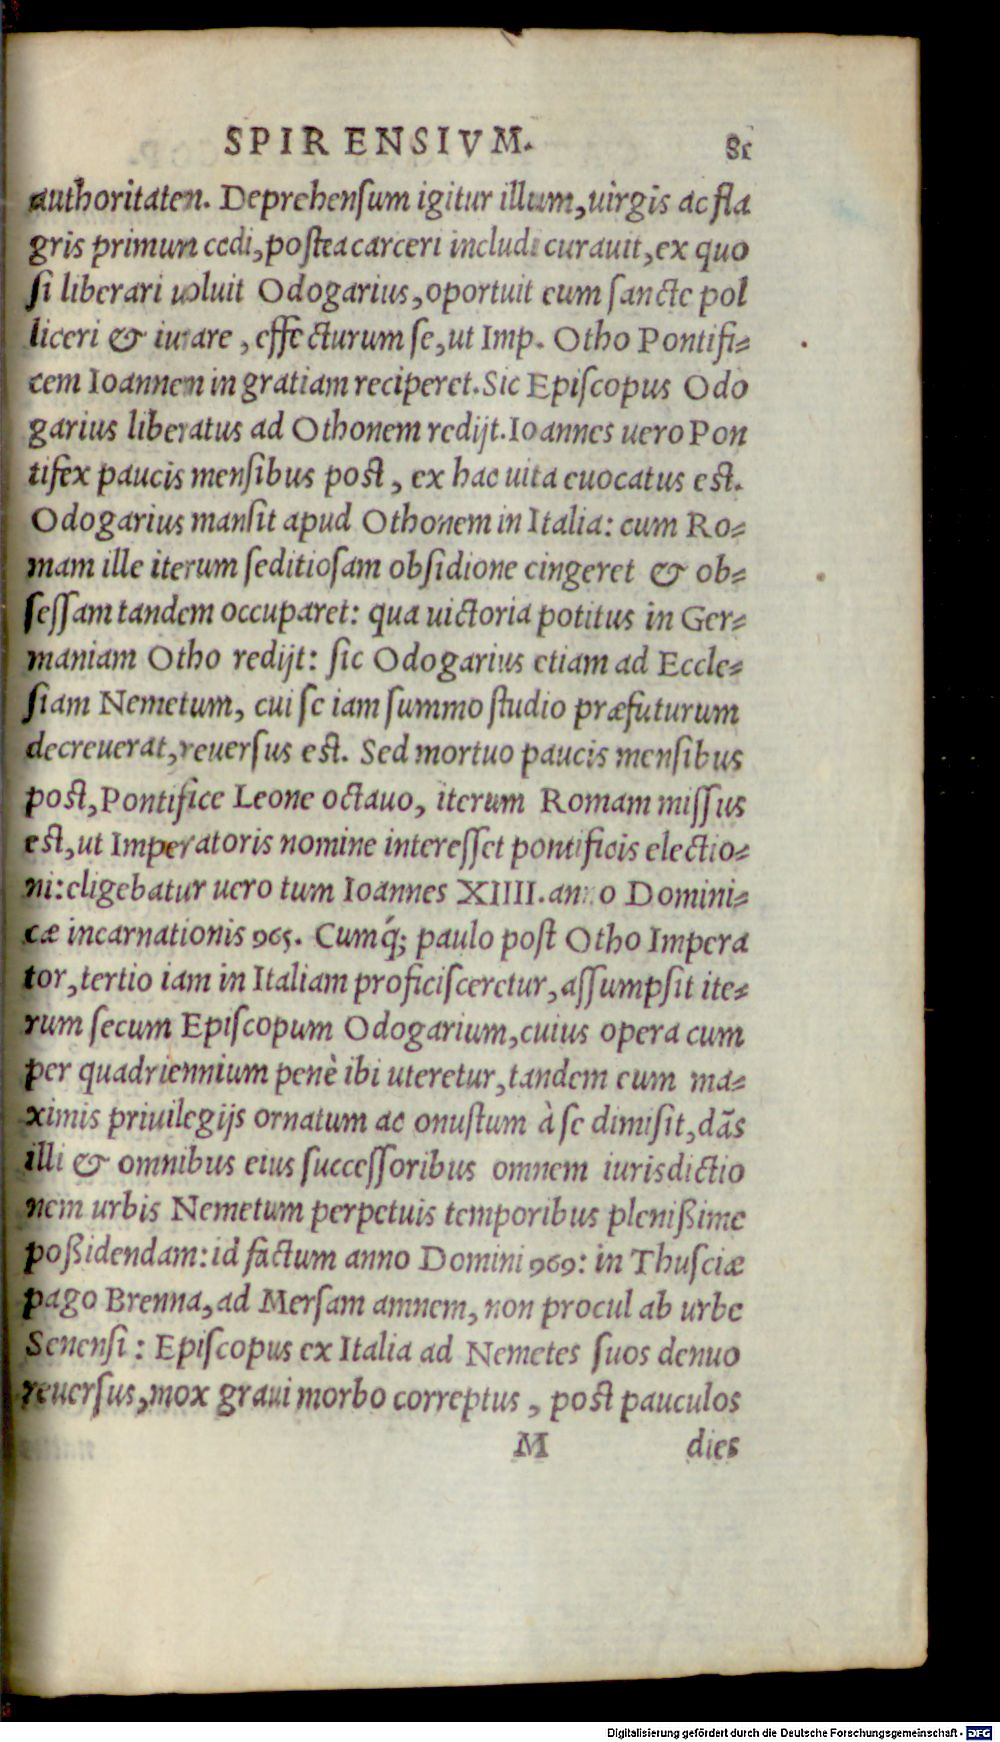 SPIRENSIVM. 81
authoritatem. Deprehensum igitur illum, uirgis ac fla
gris primum cedi, postea carceri includi curauit, ex quo
si liberari uoluit Odogarius, oportuit eum sancte pol
liceri & iurare, effecturum se, ut Imp. Otho Pontifi⸗
cem Ioannem in gratiam reciperet. Sic Episcopus Odo
garius liberatus ad Othonem redijt. Ioannes uero Pon
tifex paucis mensibus post, ex hac uita euocatus est.
Odogarius mansit apud Othonem in Italia: cum Ro⸗
mam ille iterum seditiosam obsidione cingeret & ob⸗
sessam tandem occuparet: qua uictoria potitus in Ger⸗
maniam Otho redijt: sic Odogarius etiam ad Eccle⸗
siam Nemetum, cui se iam summo studio præfuturum
decreuerat, reuersus est. Sed mortuo paucis mensibus
post, Pontifice Leone octauo, iterum Romam missus
est, ut Imperatoris nomine interesset pontificis electio⸗
ni: eligebatur uero tum Ioannes XIIII. anno Domini⸗
cæ incarnationis 965. Cumq́; paulo post Otho Impera
tor, tertio iam in Italiam proficisceretur, assumpsit ite⸗
rum secum Episcopum Odogarium, cuius opera cum
per quadriennium penè ibi uteretur, tandem eum ma⸗
ximis priuilegijs ornatum ac onustum à se dimisit, dãs
illi & omnibus eius successoribus omnem iurisdictio
nem urbis Nemetum perpetuis temporibus plenißime
poßidendam: id factum anno Domini 969: in Thusciæ
pago Brenna, ad Mersam amnem, non procul ab urbe
Senensi: Episcopus ex Italia ad Nemetes suos denuo
reuersus, mox graui morbo correptus, post pauculos
M dies
Digitalisierung gefördert durch die Deutsche Forschungsgemeinschaft - DFG